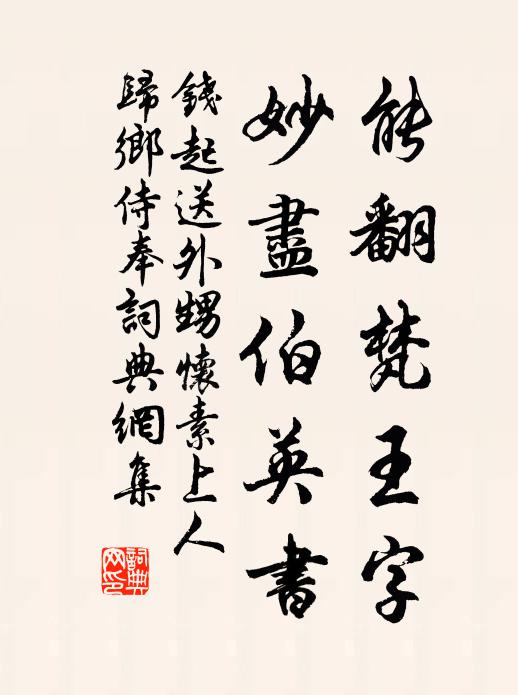 能翻梵王字
妙盡伯英書
錢起送外甥懷素上人
歸鄉侍奉詞典網集
詞典
网印